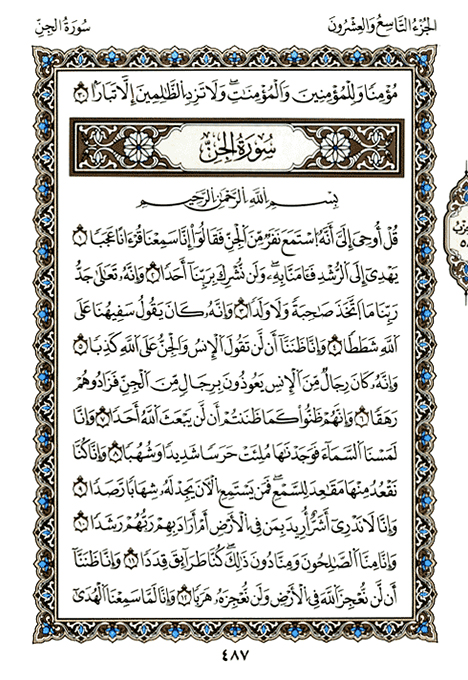 الجزء التاسع والعشرون
سورة الجن
مُؤْمِنًا وَلِلْمُؤْمِنِينَ وَالْمُؤْمِنَٰتِ ۖ وَلَا تَزِدِ الظَّٰلِمِينَ إِلَّا تَبَارًا ٢٨
سُورَةُ الْجِنِّ
بِسْمِ اللَّهِ الرَّحْمَٰنِ الرَّحِيمِ
قُلْ أُوحِيَ إِلَىَّ أَنَّهُ ٱسْتَمَعَ نَفَرٌ مِّنَ الْجِنِّ فَقَالُوٓا۟ إِنَّا سَمِعْنَا قُرْءَانًا عَجَبًا ١
يَهْدِىٓ إِلَى الرُّشْدِ فَـَٔامَنَّا بِهِۦ ۖ وَلَن نُّشْرِكَ بِرَبِّنَآ أَحَدًا ٢ وَأَنَّهُۥ تَعَٰلَىٰ جَدُّ
رَبِّنَا مَا ٱتَّخَذَ صَٰحِبَةً وَلَا وَلَدًا ٣ وَأَنَّهُۥ كَانَ يَقُولُ سَفِيهُنَا عَلَى
اللَّهِ شَطَطًا ٤ وَأَنَّا ظَنَنَّآ أَن لَّن تَقُولَ الْإِنسُ وَالْجِنُّ عَلَى اللَّهِ كَذِبًا ٥
وَأَنَّهُۥ كَانَ رِجَالٌ مِّنَ الْإِنسِ يَعُوذُونَ بِرِجَالٍ مِّنَ الْجِنِّ فَزَادُوهُمْ
رَهَقًا ٦ وَأَنَّهُمْ ظَنُّوا۟ كَمَا ظَنَنتُمْ أَن لَّن يَبْعَثَ اللَّهُ أَحَدًا ٧ وَأَنَّا
لَمَسْنَا السَّمَآءَ فَوَجَدْنَٰهَا مُلِئَتْ حَرَسًا شَدِيدًا وَشُهُبًا ٨ وَأَنَّا كُنَّا
نَقْعُدُ مِنْهَا مَقَٰعِدَ لِلسَّمْعِ ۖ فَمَن يَسْتَمِعِ الْـَٔانَ يَجِدْ لَهُۥ شِهَابًا رَّصَدًا ٩
وَأَنَّا لَا نَدْرِىٓ أَشَرٌّ أُرِيدَ بِمَن فِى الْأَرْضِ أَمْ أَرَادَ بِهِمْ رَبُّهُمْ رَشَدًا ١٠
وَأَنَّا مِنَّا الصَّٰلِحُونَ وَمِنَّا دُونَ ذَٰلِكَ ۖ كُنَّا طَرَآئِقَ قِدَدًا ١١ وَأَنَّا ظَنَنَّآ
أَن لَّن نُّعْجِزَ اللَّهَ فِى الْأَرْضِ وَلَن نُّعْجِزَهُۥ هَرَبًا ١٢ وَأَنَّا لَمَّا سَمِعْنَا الْهُدَىٰٓ
٤٨٧